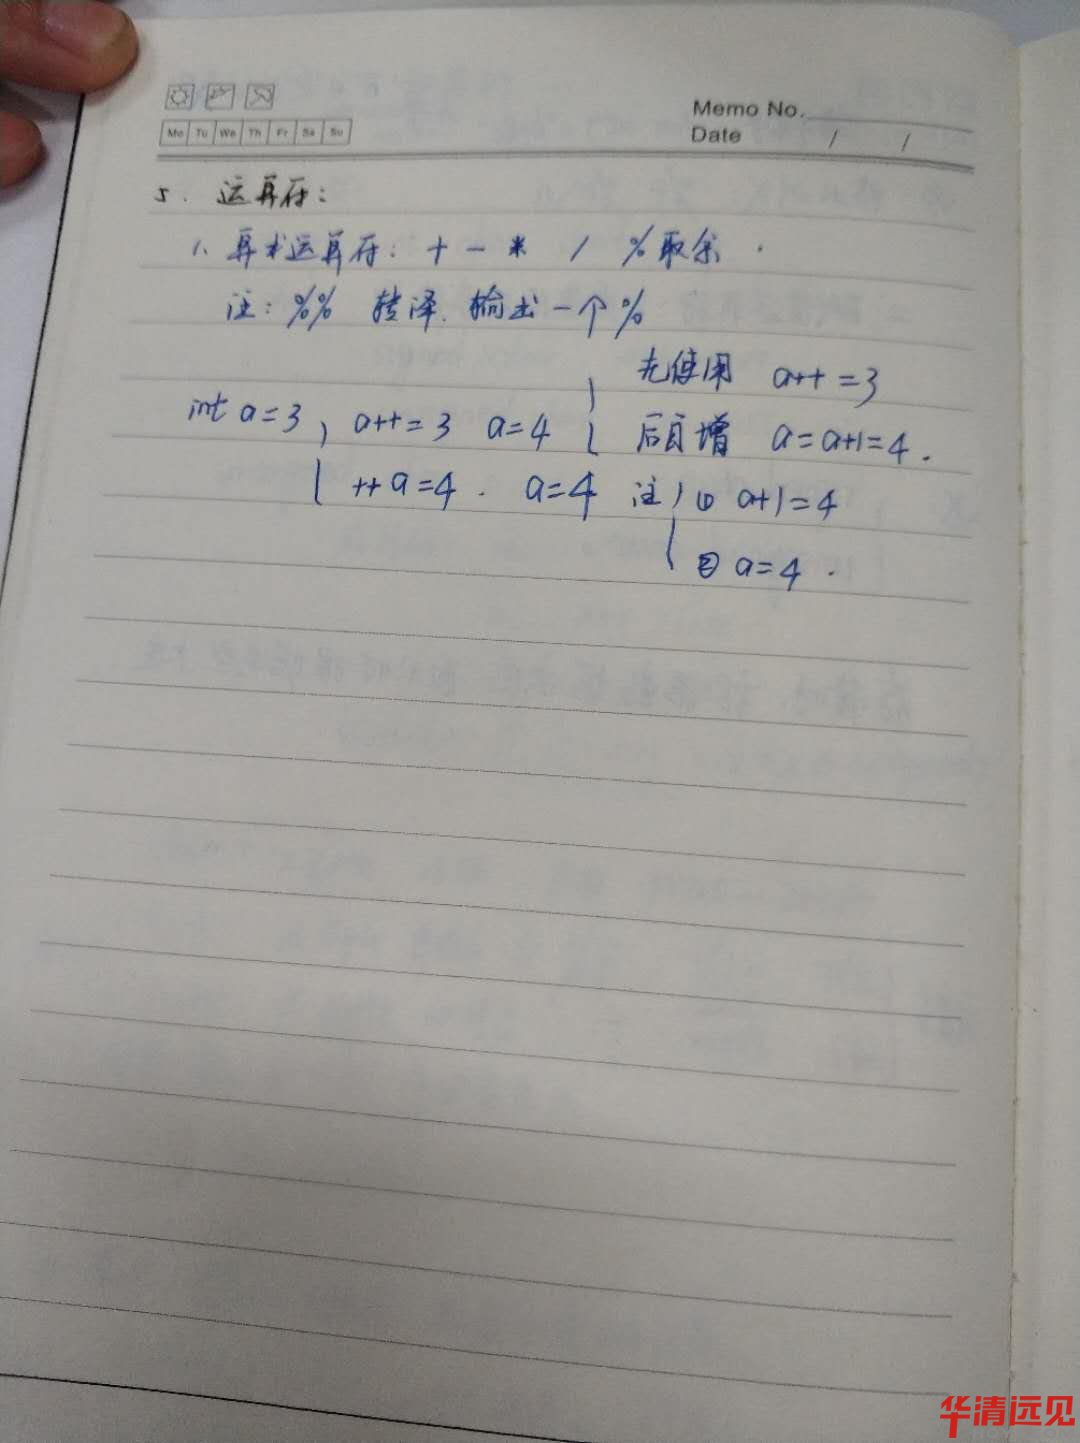 Memo No.
Mo Tu We Th Fr Sa Su
Date / /
5. 运算符:
1. 算术运算符: + - * / %取余.
注: %% 转译. 输出一个%
先使用 a++=3
int a=3, a++=3 a=4 后自增 a=a+1=4.
++a=4. a=4 注 ① a+1=4
② a=4.
华清远见